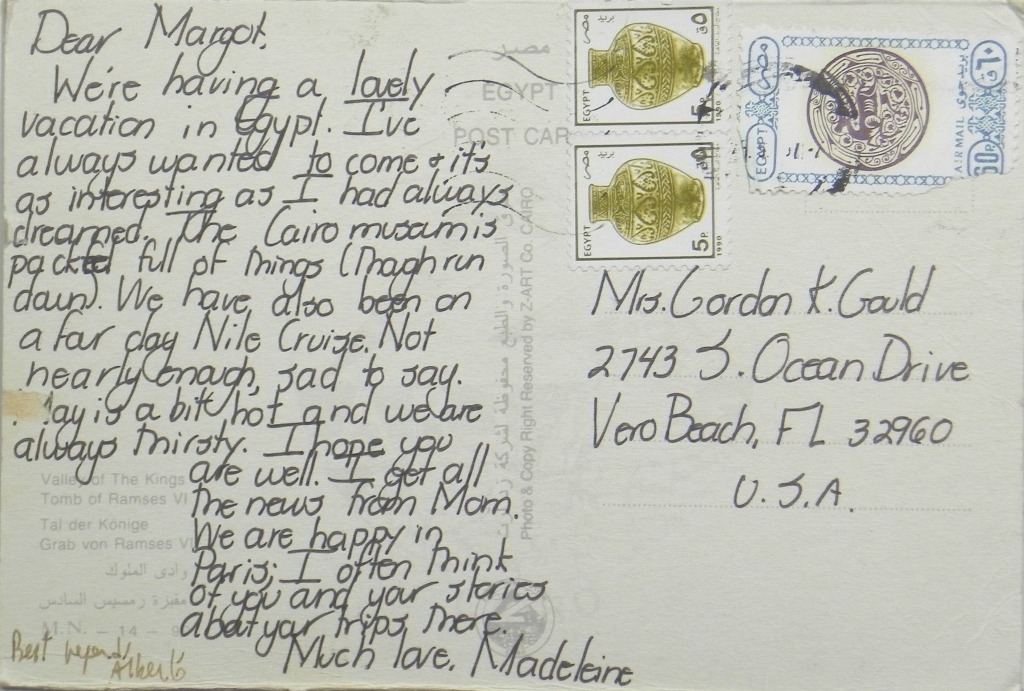 Dear Margot,
We're having a lovely
vacation in Egypt. I've
always wanted to come & it's
as interesting as I had always
dreamed. The Cairo museum is
packed full of things (though run
down). We have also been on
a four day Nile Cruise. Not
nearly enough, sad to say.
is a bit hot and we are
always thirsty. I hope you
are well. I get all
the news from Mom.
We are happy in
Paris; I often think
of you and your stories
about your trips there.
Much love, Madeleine
Best
Alberto
Valley of The Kings
Tomb of Ramses VI
Tal der Könige
Grab von Ramses VI
وادى الملوك
مقبرة رمسيس السادس
M.N. - 14 - 9
مصر
EGYPT
POST CAR
Photo & Copy Right Reserved by Z-ART Co. CAIRO
الصورة والطبع محفوظة لشركة
بريد مصر
٥ ق
EGYPT
5 P.
1990
بريد مصر
EGYPT
5 P.
1990
مصر
EGYPT
بريد جوى
AIR MAIL
٦٠ ق
60P.
Mrs. Gordon K. Gould
2743 S. Ocean Drive
Vero Beach, FL 32960
U.S.A.